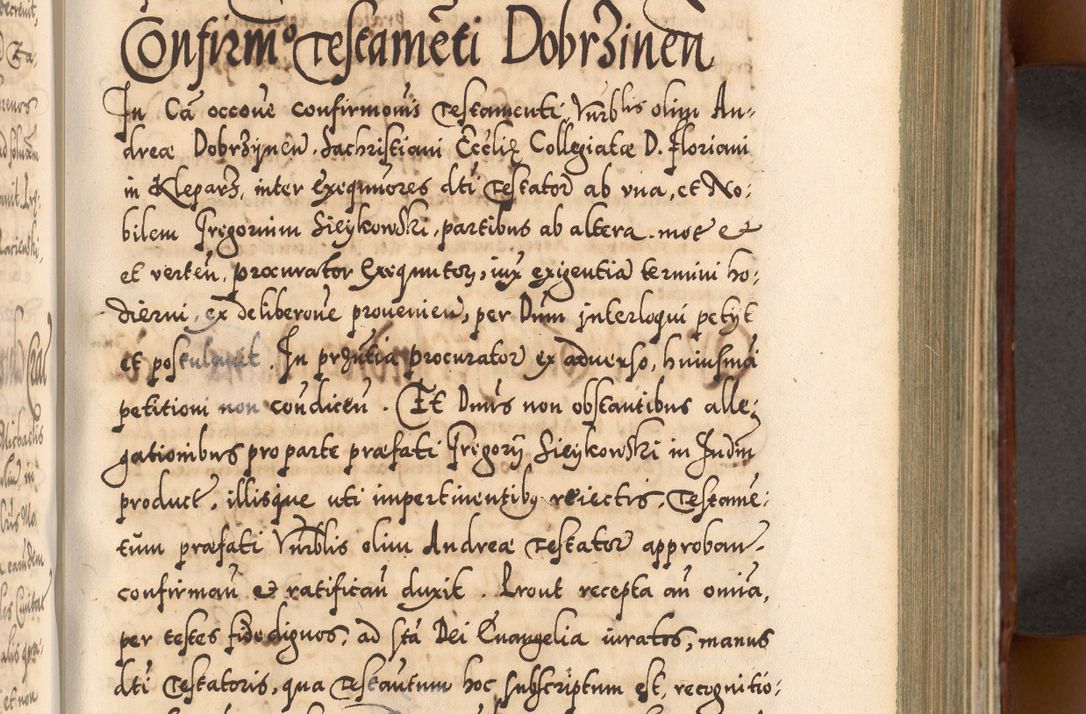 Confirm° Testamẽti Dobrzineñ
In Cã occone confirmonis Testamenti Vñrblis olim An-
dreæ Dobrzyneñ. Sachristiani Ecclię Collegiatæ D. Floriani
in Kleparz, inter Exequutores dti Testator ab vna, et No:
bilem Gregorium Sieykowski, partibus ab altera. mot et
et verteñ. procurator Exequutorz, iux exigentia termini ho:
dierni, ex deliberone proueniẽ, per Dnm interloqui petyt
et postulauit. In przntia procurator ex aduerso, huiusmõi
petitioni non condiceñ. Et Dnus non obstantibus alle:
gationibus pro parte præfati Gregory Sieykowski in Judm
product, illisque uti impertinentibus reiectis, Testame:
tum præfati Vnrblis olim Andreæ Testator approban-
confirmañ et ratificañ duxit. Prout recepta añ omia,
per testes fidedignos, ad Sta Dei Euangelia iuratos, manus
dti Testatoris, qua Testamtum hoc subscriptum est, recognitio: